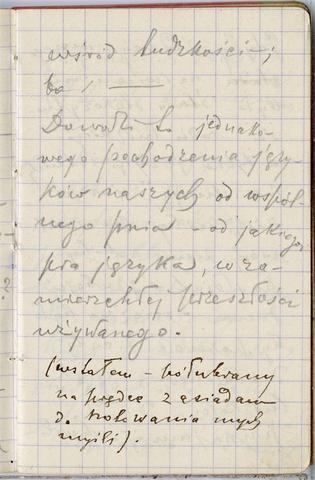 wśród ludzkości;
bo / —
Dowodzi to jednako-
wego pochodzenia języ-
ków naszych od wspól-
nego pnia - od jakiegoś
pra języka, w za-
mierzchłej przeszłości
używanego.
(wstałem - półubrany
na prędce zasiadam
do notowania mych
myśli).